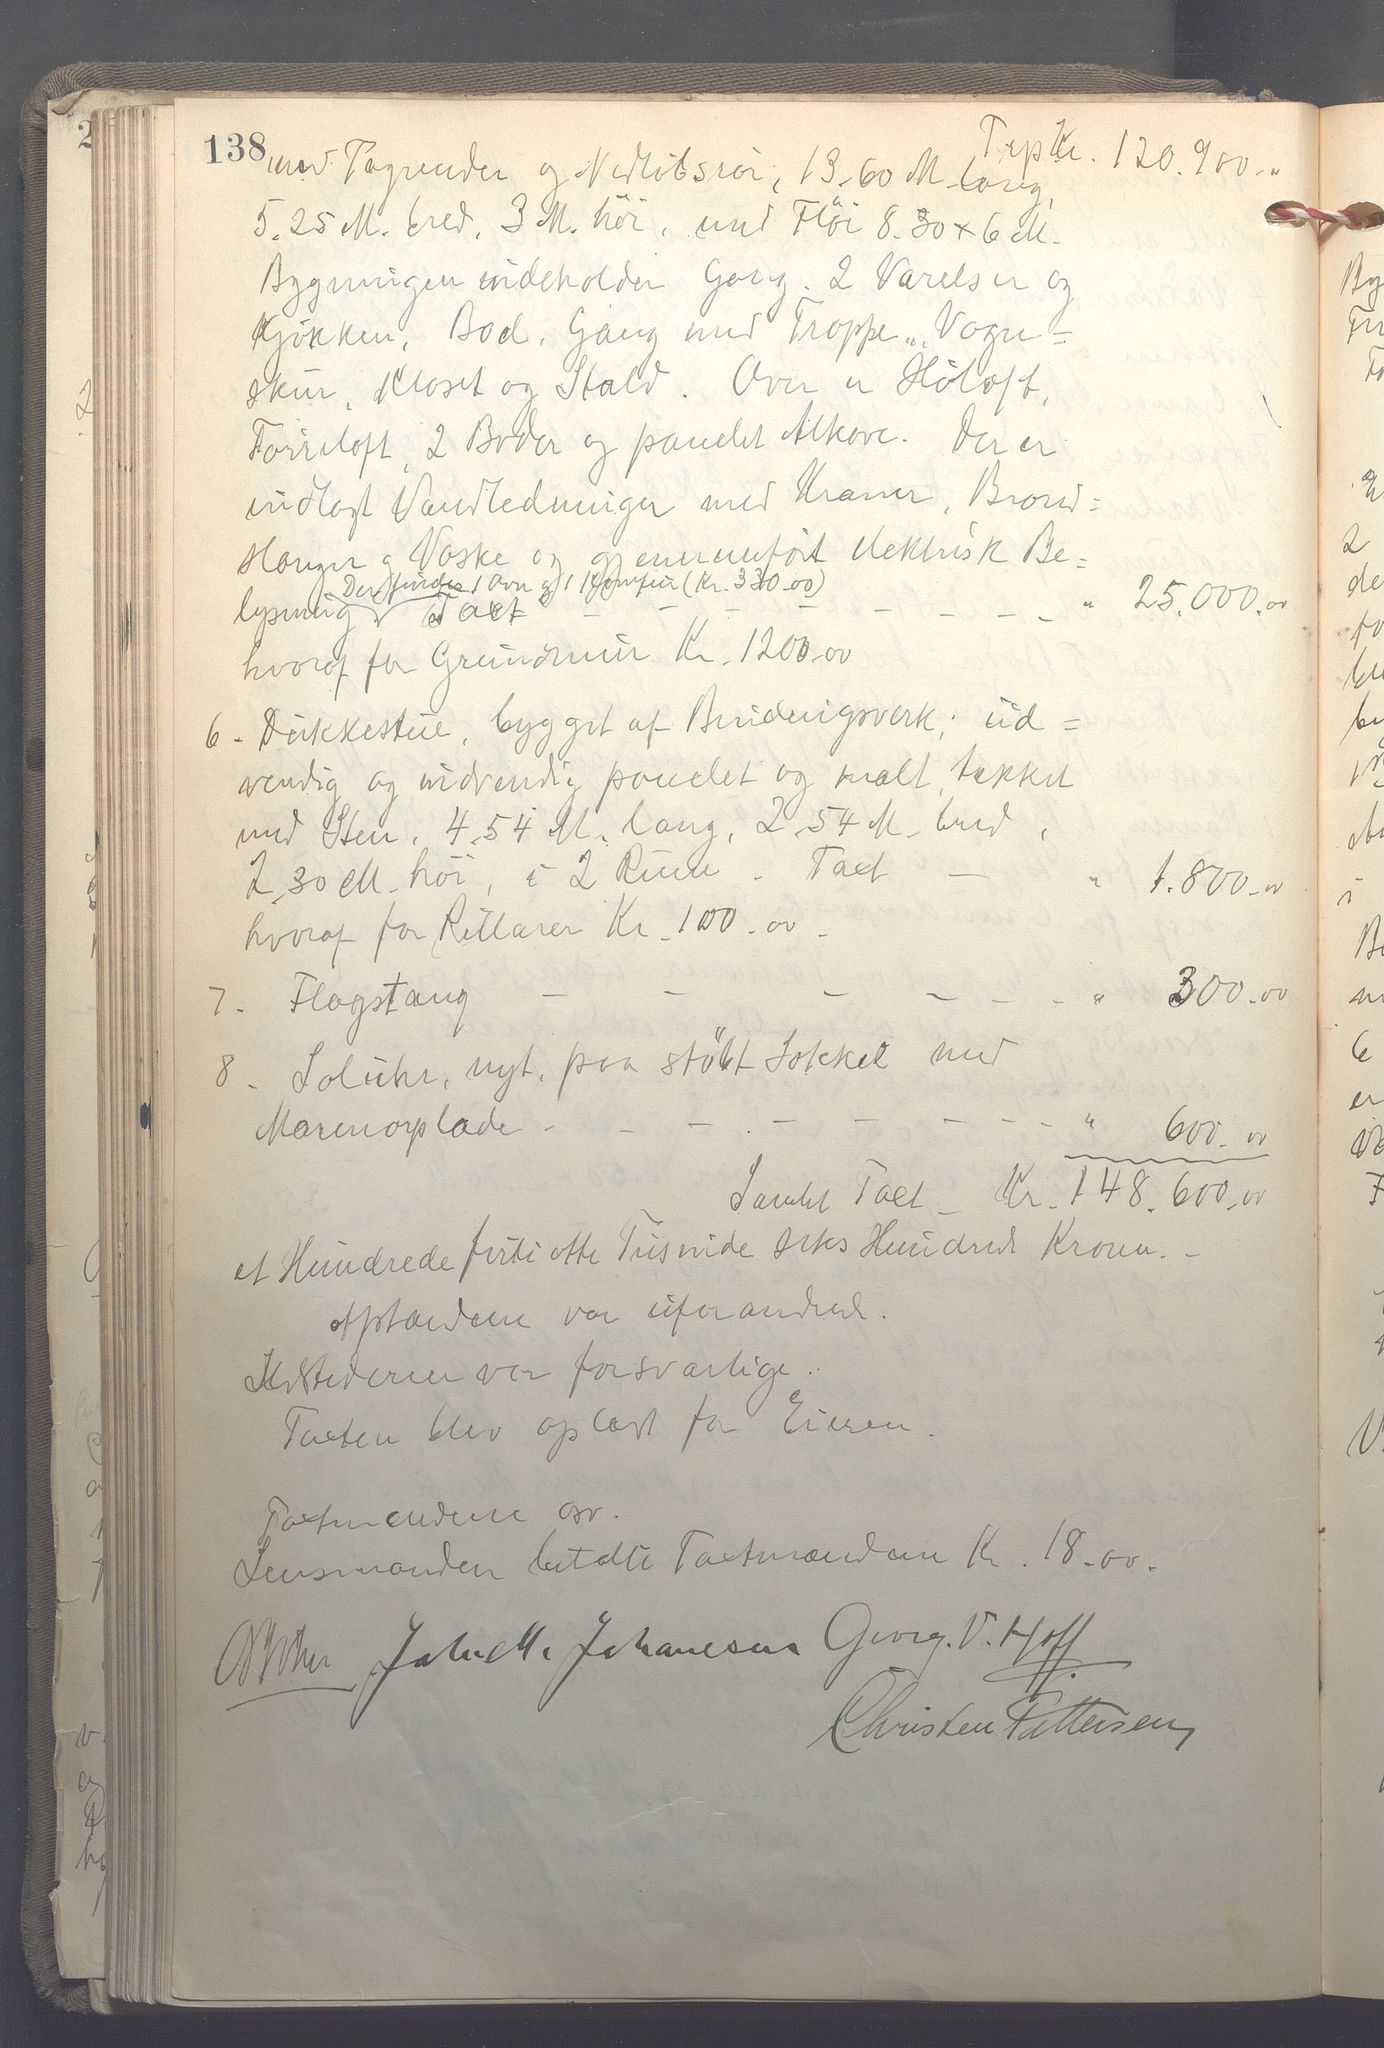 138
Trp Kr. 120.900.„
med Tagrender og Nedløbsrör, 13.60 M lang,
5.25 M. bred, 3 M. höi, med Flöi 8.30 x 6 M.
Bygningen indeholder Gang. 2 Værelser og
Kjökken, Bod, Gang med Trappe, Vogn=
skur, Kloset og Stald. Over er Höloft,
Törreloft, 2 Boder og panelet Alkove. Der er
indlagt Vandledninger med Kraner, Brand=
slanger, Vaske og gjennemført elektrisk Be=
Der findes 1 Ovn og 1 Komfur (Kr. 330.00)
lysning Taxt — — — — — — — " 25.000.00
hvoraf for Grundmur Kr. 1200.00
6. Dukkestue, bygget af Bindingsverk, ud=
vendig og indvendig panelet og malt, tækket
med Sten, 4.54 M. lang, 2.54 M. bred,
2.30 M. höi, i 2 Rum. Taxt — " 1.800.00
hvoraf for Pillarer Kr. 100.00.
7. Flagstang — — — — — — " 300.00
8. Soluhr, nyt, paa stöbt Sokkel med
Marmorplade — — — — — — — " 600.00
Samlet Taxt Kr. 148.600.00
et Hundrede førti otte Tusinde seks Hundrede Kroner.
Afstandene var uforandrede.
Ildstederne var forsvarlige.
Taxten blev oplæst for Eieren.
Taxtmændene osv.
Lensmanden betalte Taxtmændene Kr. 18.00.
John M. Johanesen Georg. V. Hoff
Christen Pettersen